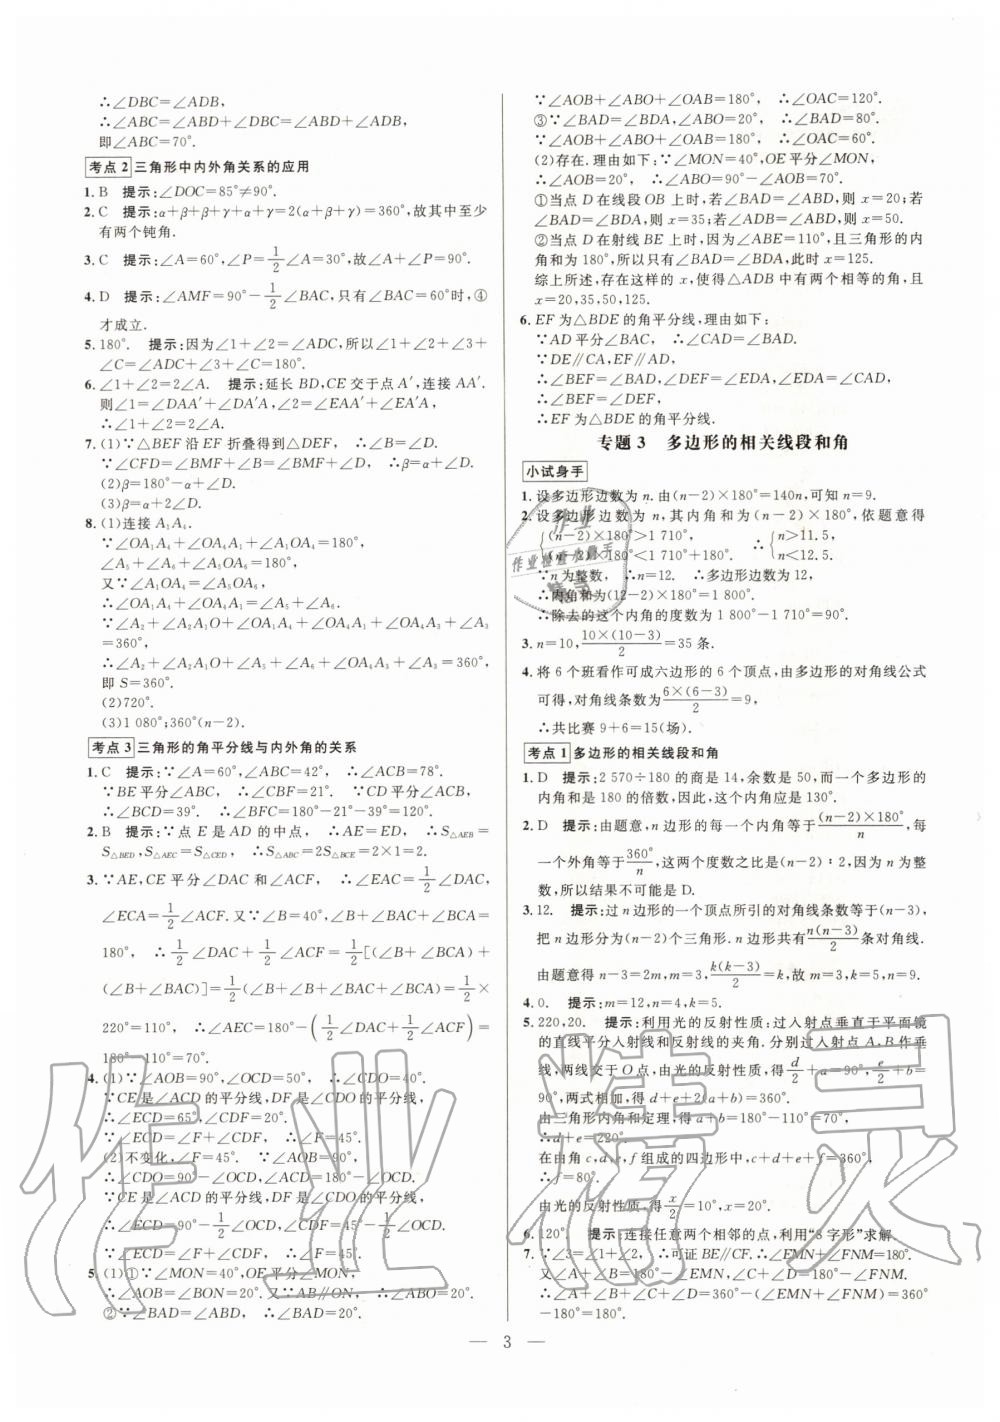 ∴∠DBC=∠ADB,
∴∠ABC=∠ABD+∠DBC=∠ABD+∠ADB,
即∠ABC=70°.
考点 2 三角形中内外角关系的应用
1. B 提示:∠DOC=85°≠90°.
2. C 提示:α+β+β+γ+α+γ=2(α+β+γ)=360°,故其中至少
有两个钝角.
3. C 提示:∠A=60°,∠P=1/2∠A=30°,故∠A+∠P=90°.
4. D 提示:∠AMF=90°-1/2∠BAC,只有∠BAC=60°时,④
才成立.
5. 180°. 提示:因为∠1+∠2=∠ADC,所以∠1+∠2+∠3+
∠C=∠ADC+∠3+∠C=180°.
6. ∠1+∠2=2∠A. 提示:延长 BD,CE 交于点 A′,连接 AA′.
则∠1=∠DAA′+∠DA′A,∠2=∠EAA′+∠EA′A,
∴∠1+∠2=2∠A.
7. (1)∵△BEF沿 EF 折叠得到△DEF,∴∠B=∠D.
∵∠CFD=∠BMF+∠B=∠BMF+∠D,∴β=α+∠D.
(2)β=180°-α+∠D.
(3)β=α+2∠D.
8. (1)连接 A₁A₄.
∵∠OA₁A₄+∠OA₄A₁+∠A₁OA₄=180°,
∠A₅+∠A₆+∠A₅OA₆=180°,
又∵∠A₁OA₄=∠A₅OA₆,
∴∠OA₁A₄+∠OA₄A₁=∠A₅+∠A₆.
∵∠A₂+∠A₂A₁O+∠OA₁A₄+∠OA₄A₁+∠OA₄A₃+∠A₃
=360°,
∴∠A₂+∠A₂A₁O+∠A₅+∠A₆+∠OA₄A₃+∠A₃=360°,
即 S=360°.
(2)720°.
(3)1 080°;360°(n-2).
考点 3 三角形的角平分线与内外角的关系
1. C 提示:∵∠A=60°,∠ABC=42°, ∴∠ACB=78°.
∵BE平分∠ABC, ∴∠CBF=21°. ∵CD平分∠ACB,
∴∠BCD=39°. ∴∠BFC=180°-21°-39°=120°.
2. B 提示:∵点 E 是 AD 的中点, ∴AE=ED, ∴S△AEB=
S△BED,S△AEC=S△CED, ∴S△ABC=2S△BCE=2×1=2.
3. ∵AE,CE 平分∠DAC 和∠ACF, ∴∠EAC=1/2∠DAC,
∠ECA=1/2∠ACF.又∵∠B=40°,∠B+∠BAC+∠BCA=
180°, ∴1/2∠DAC+1/2∠ACF=1/2[(∠B+∠BCA)+
(∠B+∠BAC)]=1/2(∠B+∠B+∠BAC+∠BCA)=1/2×
220°=110°, ∴∠AEC=180°-(1/2∠DAC+1/2∠ACF)=
180°-110°=70°.
4. (1)∵∠AOB=90°,∠OCD=50°, ∴∠CDO=40°.
∵CE是∠ACD的平分线,DF是∠CDO的平分线,
∴∠ECD=65°,∠CDF=20°.
∵∠ECD=∠F+∠CDF, ∴∠F=45°.
(2)不变化,∠F=45°. ∵∠AOB=90°,
∴∠CDO=90°-∠OCD,∠ACD=180°-∠OCD.
∵CE是∠ACD的平分线,DF是∠CDO的平分线,
∴∠ECD=90°-1/2∠OCD,∠CDF=45°-1/2∠OCD.
∵∠ECD=∠F+∠CDF, ∴∠F=45°.
5. (1)①∵∠MON=40°,OE平分∠MON,
∴∠AOB=∠BON=20°.又∵AB∥ON,∴∠ABO=20°.
②∵∠BAD=∠ABD, ∴∠BAD=20°.
∵∠AOB+∠ABO+∠OAB=180°, ∴∠OAC=120°.
③∵∠BAD=∠BDA,∠ABO=20°, ∴∠BAD=80°.
∵∠AOB+∠ABO+∠OAB=180°, ∴∠OAC=60°.
(2)存在. 理由如下:∵∠MON=40°,OE平分∠MON,
∴∠AOB=20°, ∴∠ABO=90°-∠AOB=70°.
①当点 D 在线段 OB 上时,若∠BAD=∠ABD,则 x=20;若
∠BAD=∠BDA,则 x=35;若∠ADB=∠ABD,则 x=50.
②当点 D 在射线 BE 上时,因为∠ABE=110°,且三角形的内
角和为 180°,所以只有∠BAD=∠BDA,此时 x=125.
综上所述,存在这样的 x,使得△ADB 中有两个相等的角,且
x=20,35,50,125.
6. EF为△BDE的角平分线,理由如下:
∵AD平分∠BAC, ∴∠CAD=∠BAD.
∵DE∥CA,EF∥AD,
∴∠BEF=∠BAD,∠DEF=∠EDA,∠EDA=∠CAD,
∴∠BEF=∠DEF,
∴EF为△BDE的角平分线.
专题 3 多边形的相关线段和角
小试身手
1. 设多边形边数为 n. 由(n-2)×180°=140n,可知 n=9.
2. 设多边形边数为 n,其内角和为(n-2)×180°,依题意得
{(n-2)×180°>1 710°, ∴{n>11.5,
(n-2)×180°<1 710°+180°. n<12.5.
∵n为整数, ∴n=12. ∴多边形边数为12,
∴内角和为(12-2)×180°=1 800°.
∴除去的这个内角的度数为1 800°-1 710°=90°.
3. n=10,10×(10-3)/2=35 条.
4. 将 6 个班看作可成六边形的 6 个顶点,由多边形的对角线公式
可得,对角线条数为6×(6-3)/2=9,
∴共比赛 9+6=15(场).
考点 1 多边形的相关线段和角
1. D 提示:2 570÷180 的商是 14,余数是 50,而一个多边形的
内角和是 180 的倍数,因此,这个内角应是 130°.
2. D 提示:由题意,n 边形的每一个内角等于(n-2)×180°/n,每
一个外角等于360°/n,这两个度数之比是(n-2)∶2,因为 n 为整
数,所以结果不可能是 D.
3. 12. 提示:过 n 边形的一个顶点所引的对角线条数等于(n-3),
把 n 边形分为(n-2)个三角形. n 边形共有n(n-3)/2条对角线.
由题意得 n-3=2m,m=3,k(k-3)/2=k,故 m=3,k=5,n=9.
4. 0. 提示:m=12,n=4,k=5.
5. 220,20. 提示:利用光的反射性质:过入射点垂直于平面镜
的直线平分入射线和反射线的夹角. 分别过入射点 A,B 作垂
线,两线交于 O 点,由光的反射性质,得 d/2+a=90°,e/2+b=
90°,两式相加,得 d+e+2(a+b)=360°.
由三角形内角和定理,得 a+b=180°-110°=70°.
∴d+e=220°.
在由角 c,d,e,f 组成的四边形中,c+d+e+f=360°,
∴f=80°.
由光的反射性质,得 x/2=10°,x=20°.
6. 120°. 提示:连接任意两个相邻的点,利用“8 字形”求解.
7. ∵∠3=∠1+∠2,∴可证BE∥CF.∴∠EMN+∠FNM=180°.
又∵∠A+∠B=360°-∠EMN,∠C+∠D=360°-∠FNM.
∴∠A+∠B+∠C+∠D=360°-(∠EMN+∠FNM)=360°
-180°=180°.
— 3 —
作业
作业检查小能手
精灵
作业精灵